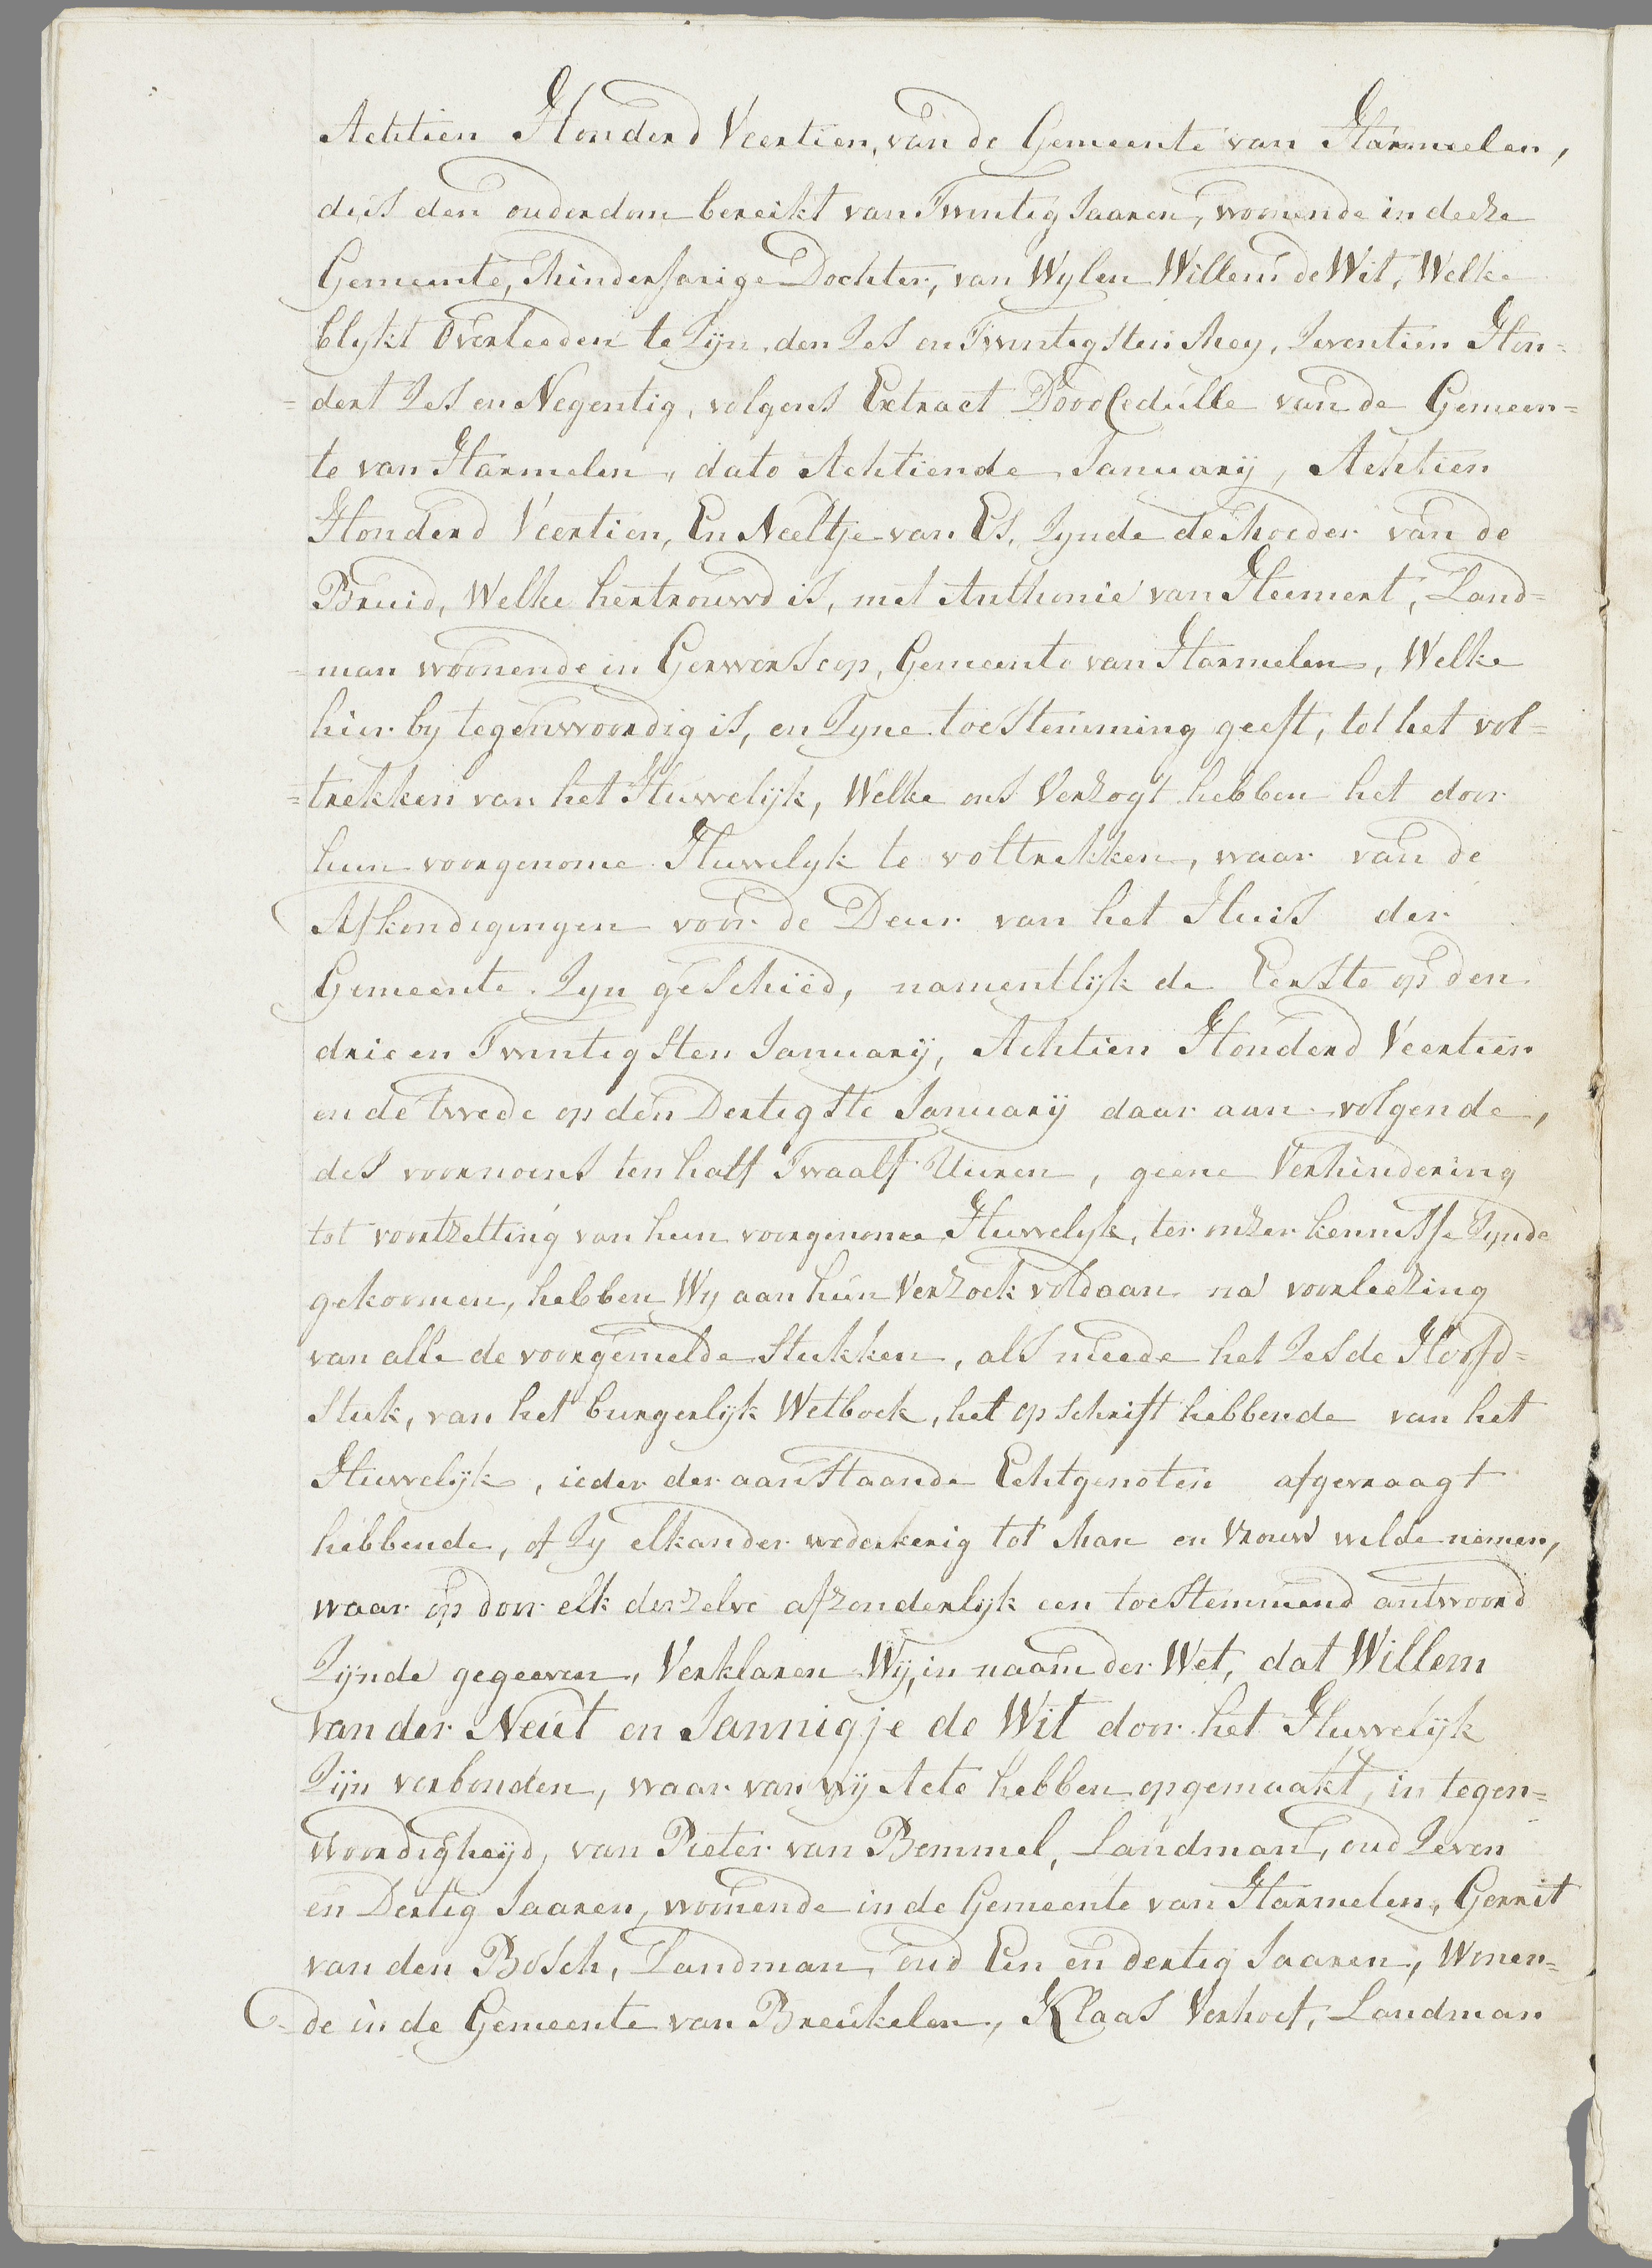 Achtien Honderd Veertien, van de Gemeente van Harmeelen,
dus den ouderdom bereikt van Twintig Jaaren, woonende in deeze
Gemeente, Minderjarige Dochter, van Wylen Willem de Wit, Welke
blykt Overleeden te Zijn, den Zes en Twintigsten Mey, Zeventien Hon=
=dert Zes en Negentig, volgens Extract Dood Cedulle van de Gemeen=
te van Harmelen, dato Achtiende January, Achtien
Honderd Veertien, En Neeltje van Es, Zynde de Moeder van de
Bruid, Welke hertrouwd is, met Anthonie van Steemert, Land=
=man woonende in Gerwerscop, Gemeente van Harmelen, Welke
hier by tegenwoordig is, en Zyne toestemming geeft, tot het vol=
=trekken van het Huwelijk, Welke ons Verzogt hebben het door
hun voorgenome Huwelyk te voltrekken, waar van de
Afkondigingen voor de Deur van het Huis der
Gemeente Zyn geschied, namentlijk de Eerste op den
drie en Twintigsten January, Achtien Honderd Veertien
en de twede op den Dertigste January daar aan volgende,
des voornoens ten half Twaalf Uuren, geene Verhindering
tot voortzetting van hun voorgenome Huwelyk, ter onzer kennisse Zynde
gekoomen, hebben Wy aan hun Verzoek voldaan na voorleezing
van alle de voorgemelde Stukken, als meede het Zesde Hoofd=
Stuk, van het burgerlyk Wetboek, het opschrift hebbende van het
Huwelijk, ieder der aanstaande Echtgenoten afgevraagt
hebbende, of Zy elkander wederkerig tot Man en Vrouw wilde nemen,
waar op door elk derzelve afzonderlyk een toestemmend antwoord
Zijnde gegeeven, Verklaren Wij, in naam der Wet, dat Willem
van der Neut en Jannigje de Wit door het Huwelijk
Zijn verbonden, waar van wij Acte hebben opgemaakt, in tegen=
woordigheyd, van Pieter van Bemmel, Landman, oud Zeven
en Dertig Jaaren, woonende in de Gemeente van Harmelen, Gerrit
van den Bosch, Landman, oud Een en dertig Jaaren, Wonen=
=de in de Gemeente van Breukelen, Klaas Verhoef, Landman